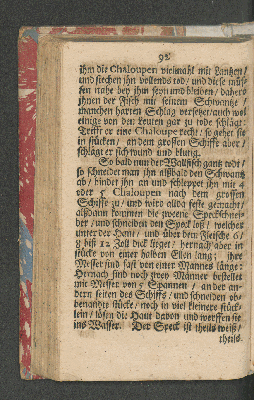 92
ihm die Chaloupen vielmahl mit Lantzen /
und stechen ihn vollends tod / und diese müs-
sen nahe bey ihm seyn und bleiben / dahero
ihnen der Fisch mit seinem Schwantze /
manchen harten Schlag versetzet / auch wol
einige von den Leuten gar zu tode schlägt.
Trifft er eine Chaloupe recht / so gehet sie
in stücken / an dem grossen Schiffe aber /
schlägt er sich wund und blutig.
So bald nun der Wallfisch gantz todt /
so schneidet man ihn alßbald den Schwantz
ab / bindet ihn an und schleppet ihn mit 4
oder 5 Chaloupen nach dem grossen
Schiffe zu / und wird allda feste gemacht /
alßdann kommen die zweene Speckschnei-
der / und schneiden den Speck loß / welcher
unter der Haut / und über dem Fleische 6 /
8 biß 12 Zoll dick lieget / hernach aber in
stücke von einer halben Ellen lang; ihre
Messer sind fast von einer Mannes länge:
Hernach sind noch zwey Männer bestellet
mit Messer von 5 Spannen / an der an-
dern seiten des Schiffs / und schneiden ob-
benannte stücke / noch in viel kleinere stück-
lein / lösen die Haut davon und werffen sie
ins Wasser. Der Speck ist theils weiß /
theils